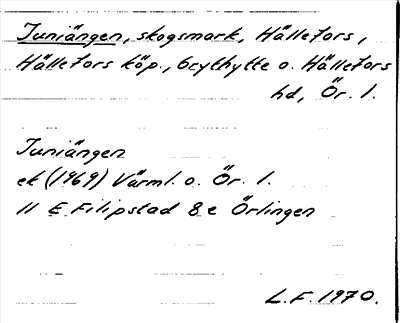 Juniängen, skogsmark, Hällefors,
Hällefors köp., Grythytte o. Hällefors
hd, Ör. l.
Juniängen
ek (1969) Värml. o. Ör. l.
11 E Filipstad 8 e Örlingen
L.F. 1970.